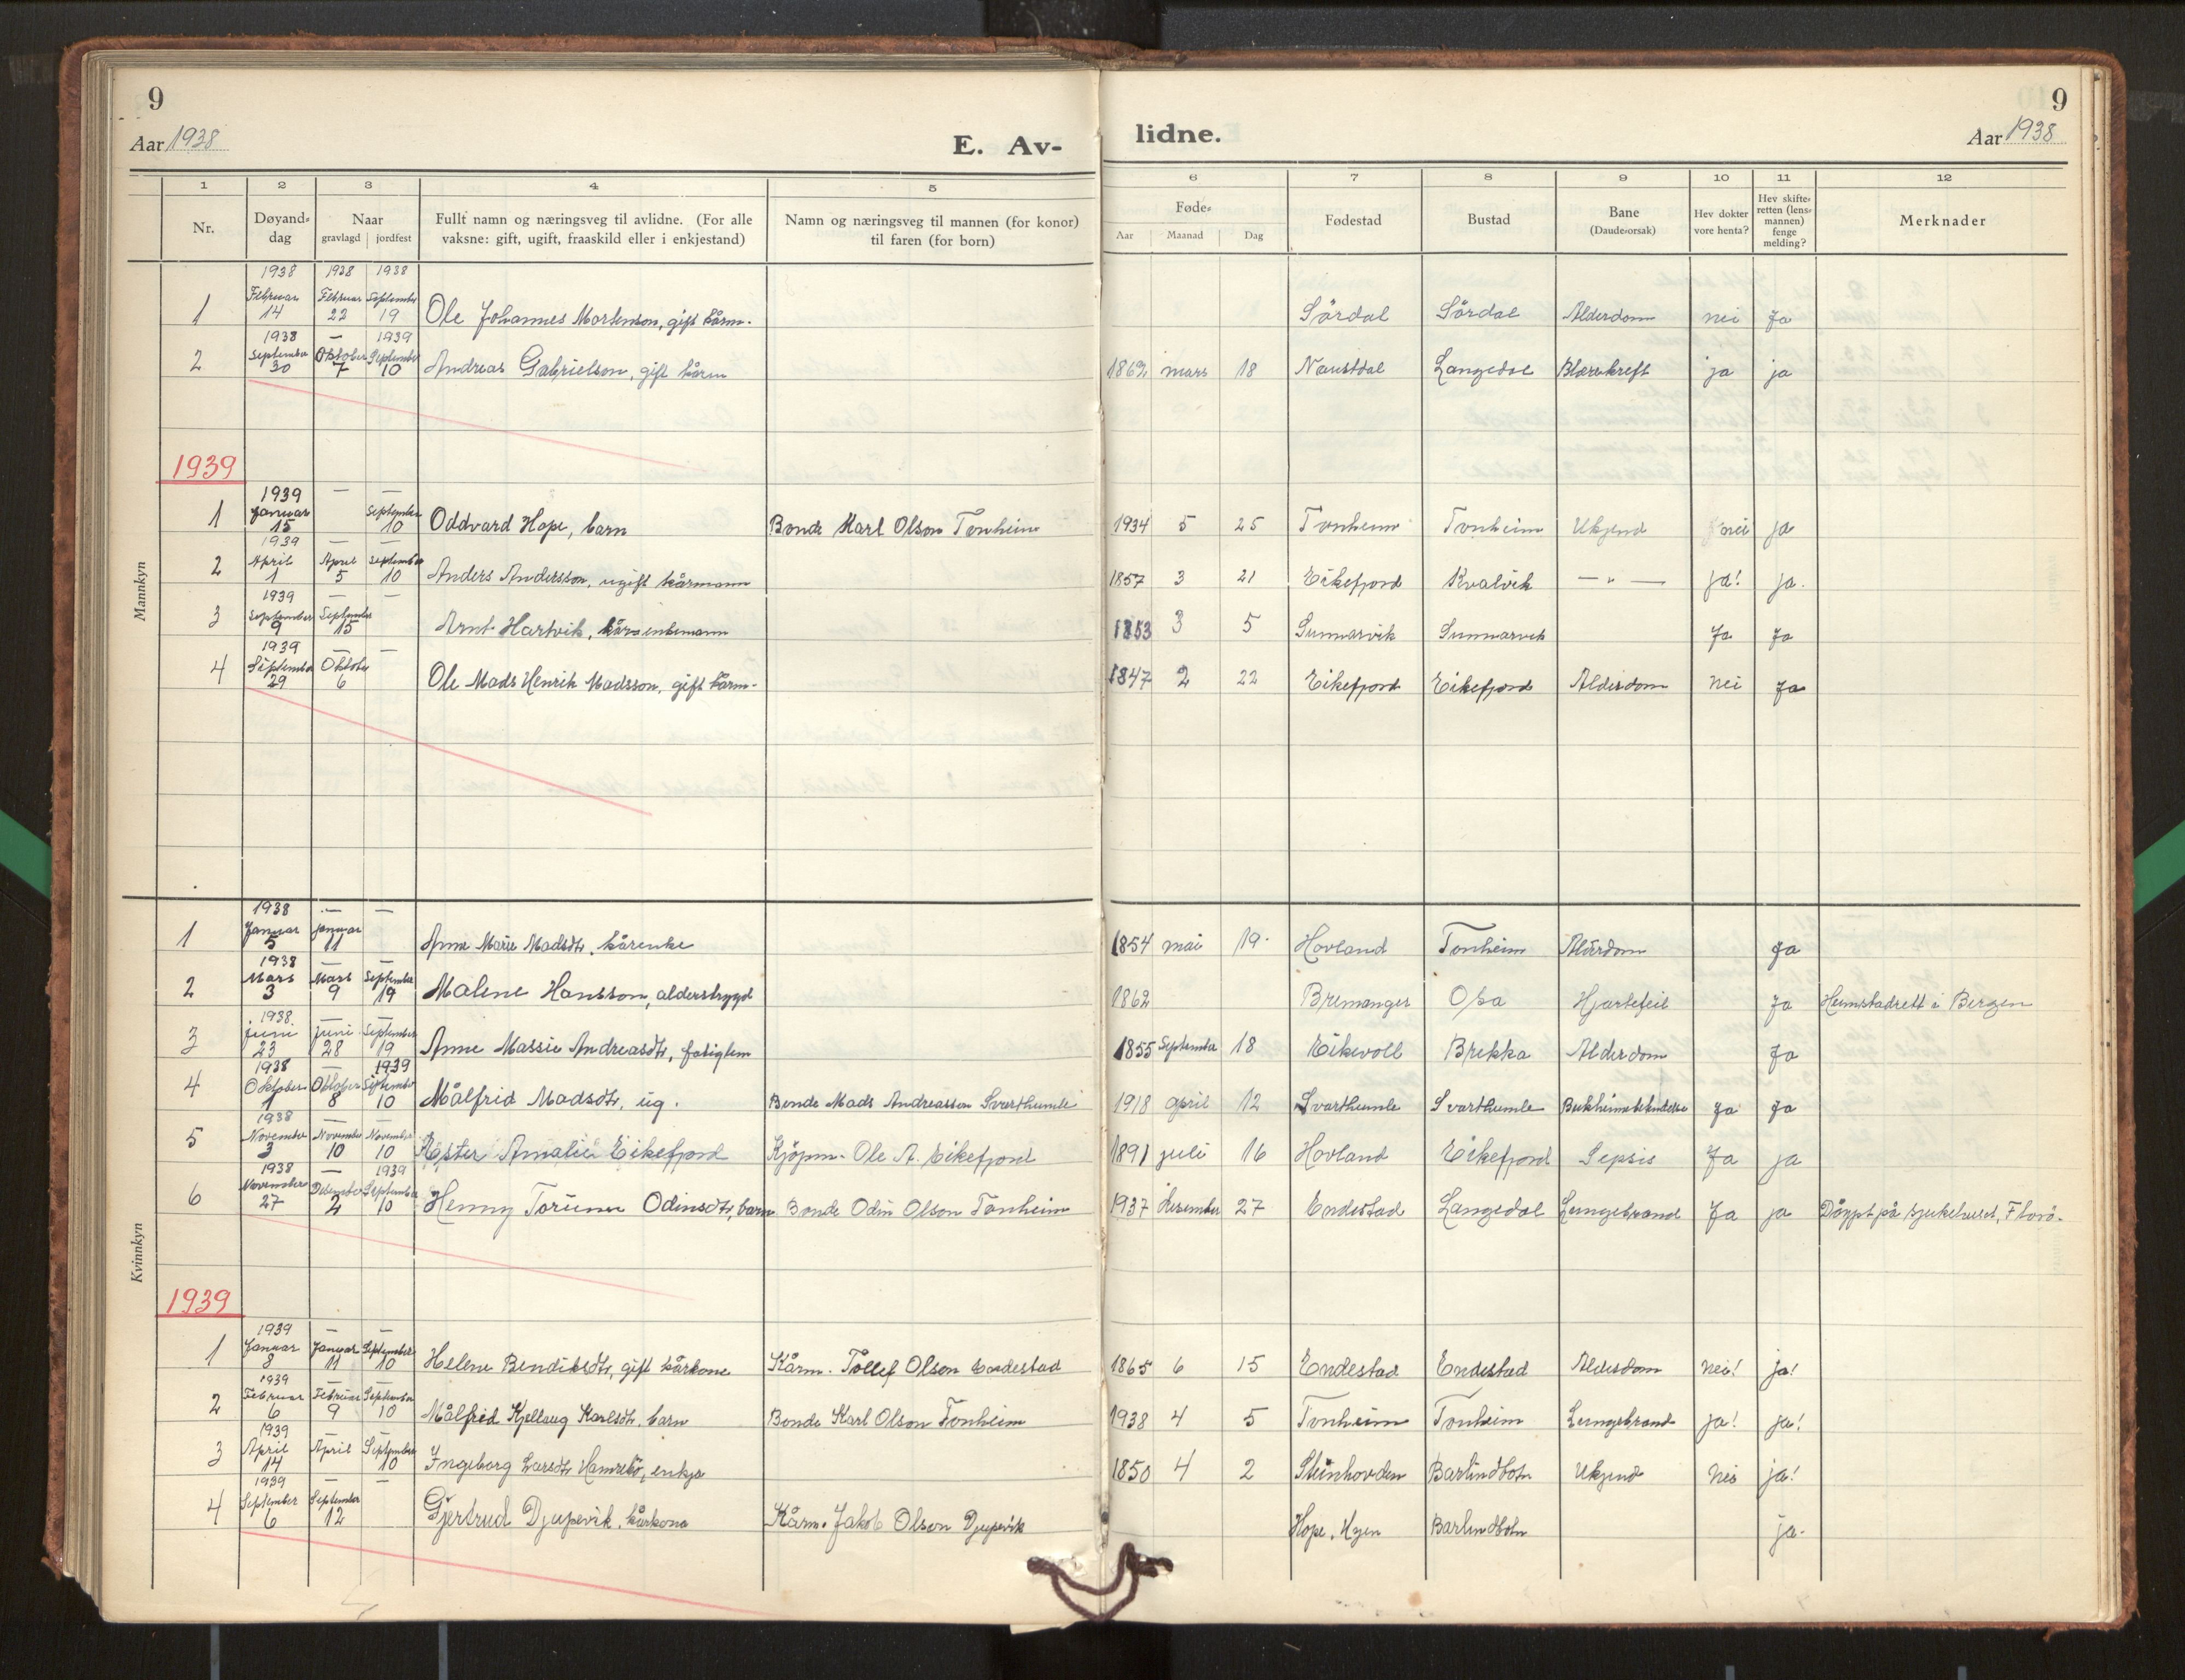 9
9
Aar 1938
E. Av-
lidne.
Aar 1938
1 2 3 4 5 6 7 8 9 10 11 12
Nr.
Døyand-dag
Naar
gravlagd jordfest
Fullt namn og næringsveg til avlidne. (For alle
vaksne: gift, ugift, fraaskild eller i enkjestand)
Namn og næringsveg til mannen (for konor)
til faren (for born)
Føde-
Aar Maanad Dag
Fødestad
Bustad
Bane
(Daude-orsak)
Hev dokter
vore henta?
Hev skifte-
retten (lens-
mannen)
fenge
melding?
Merknader
Mannkyn
1938 1938 1938
1 Februar 14 Februar 22 September 19 Ole Johannes Mortenson, gift kårm. Sørdal Sørdal Alderdom nei Ja
1938 — 1939
2 September 30 Oktober 7 September 10 Andreas Gabrielson, gift kårm 1862 mars 18 Naustdal Langedal Blærekreft ja ja
1939
1939 — —
1 Januar 15 September 10 Oddvard Hope, barn Bonde Karl Olson Tonheim 1934 5 25 Tonheim Tonheim Ukjend nei ja
1939 — —
2 April 1 April 5 September 10 Anders Andersson, ugift kårmann 1857 3 21 Eikefjord Kvalvik — " — ja! ja.
1939 — —
3 September 9 September 15 Arnt Hartvik, kårenkemann 1853 3 5 Sunnarvik Sunnarvik Ja Ja
1939 — —
4 September 29 Oktober 6 Ole Mads Henrik Madsson, gift kårm. 1847 2 22 Eikefjord Eikefjord Alderdom nei Ja
Kvinnkyn
1938 — —
1 Januar 5 januar 11 Anne Marie Madsdtr. kårenke 1854 mai 19 Hovland Tonheim Alderdom Ja
1938 — —
2 Mars 3 Mars 9 September 19 Malene Hansson, alderstrygd 1862 Bremanger Osa Hjartefeil Ja Heimstadrett i Bergen
1938 — —
3 juni 23 juni 28 September 19 Anne Massie Andreasdtr, fatiglem 1855 September 18 Eikevoll Brekka Alderdom Ja
1938 — 1939
4 Oktober 1 Oktober 8 September 10 Målfrid Madsdtr, ug. Bonde Mads Andreasson Svarthumle 1918 april 12 Svarthumle Svarthumle Ja Ja
1938 — —
5 November 3 November 10 November 10 Ester Amalie Eikefjord Kjøpm. Ole A. Eikefjord 1891 juli 16 Hovland Eikefjord Sepsis Ja ja
1938 — 1939
6 November 27 Desember 2 September 10 Henny Torunn Odinsdtr, barn Bonde Odin Olson Tonheim 1937 desember 27 Endestad Langedal Lungebrand Ja ja Døypt på sjukehuset, Florø.
1939
1939 — —
1 Januar 8 Januar 11 September 10 Helene Bendiksdtr, gift kårkone Kårm. Tollef Olson Endestad 1865 6 15 Endestad Endestad Alderdom nei! ja!
1939 — —
2 Februar 6 Februar 9 September 10 Målfrid Kjellaug Karlsdtr. barn Bonde Karl Olson Tonheim 1938 4 5 Tonheim Tonheim Lungebrand ja! ja!
1939 — —
3 April 14 April September 10 Ingeborg Larsdtr Hamrebø, enkja 1850 4 2 Steinhovden Barlindbotn Ukjend nei ja!
1939 — —
4 September 6 September 12 Gjertrud Djupevik, kårkona Kårm. Jakob Olson Djupevik Hope, Hyen Barlindbotn ja.